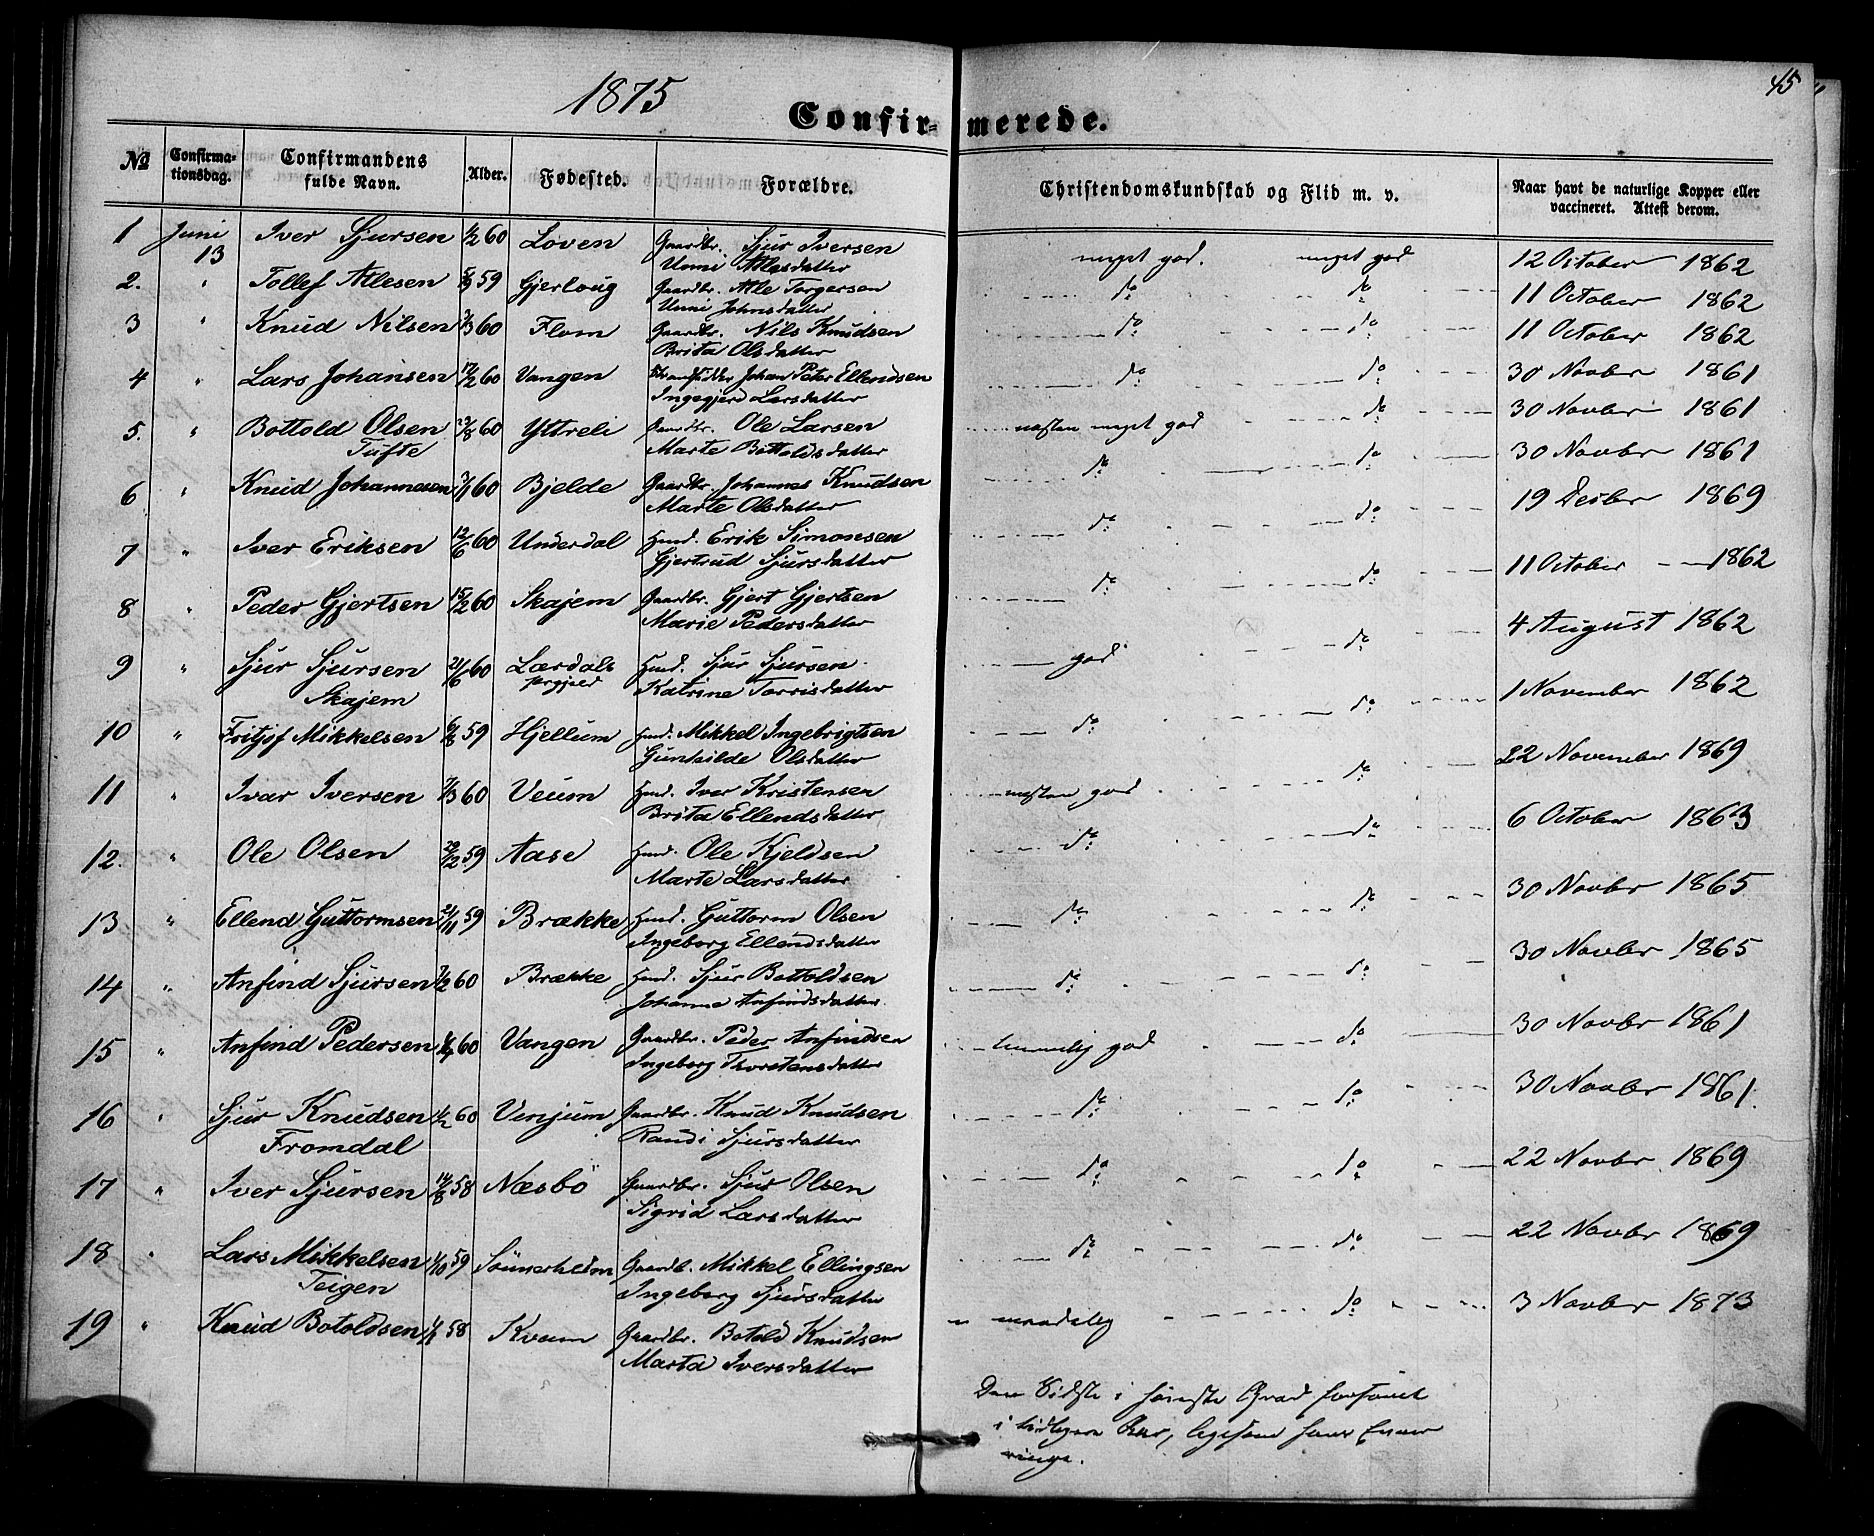 1875
45
Confirmerede.
No Confirmationsdag. Confirmandens fulde Navn. Alder. Fødested. Forældre. Christendomskundskab og Flid m. v. Naar havt de naturlige Kopper eller vaccineret. Attest derom.
1 Juni 13 Iver Sjursen 1/2 60 Loven Gaardbr. Sjur Iversen meget god. meget god 12 October 1862
Unni Atlesdatter
2. " Tollef Atlesen 59 Gjerloug Gaardbr. Atle Torgersen do do 11 October 1862
Unni Johnsdatter
3 " Knud Nilsen 60 Flom Gaardbr. Nils Knudsen do do 11 October 1862
Brita Olsdatter
4 " Lars Johansen 60 Vangen Johan Peter Ellendsen do do 30 Novber 1861
Ingegjerd Larsdatter
5. " Bottold Olsen 60 Yttreli Gaardbr. Ole Larsen næsten meget god do 30 Novber 1861
Tufte Marte Bottoldsdatter
6 " Knud Johannesen 60 Bjelde Gaardbr. Johannes Knudsen do do 30 Novbr 1861
Marte Olsdatter
7 " Iver Eriksen 12/6 60 Underdal Husd. Erik Simonsen do do 19 Desber 1869
Gjertrud Sjursdatter
8 " Peder Gjertsen 15/2 60 Skajem Gaardbr. Gjert Gjertsen do do 11 October 1862
Marie Pedersdatter
9 " Sjur Sjursen 21/6 60 Lærdals Husd. Sjur Sjursen god do 4 August 1862
Skajem prgjeld Katrine Torrisdatter
10 " Fritjof Mikkelsen 59 Hjellum Husd. Mikkel Ingebrigtsen do do 1 November 1862
Gunhilde Olsdatter
11 " Ivar Iversen 7/3 60 Veum Husd. Iver Kristensen næsten god do 22 November 1869
Brita Ellendsdatter
12. " Ole Olsen 59 Aase Husd. Ole Kjeldsen do do 6 October 1863
Marte Larsdatter
13 " Ellend Guttormsen 21/11 59 Brække Husd. Guttorm Olsen do do 30 Novbr 1865
Ingeborg Ellendsdatter
14 " Anfind Sjursen 60 Brække Husd. Sjur Bottoldsen do do 30 Novbr 1865
Johanna Anfindsdatter
15 " Anfind Pedersen 60 Vangen Gaardbr. Peder Anfindsen temmelig god do 30 Novbr 1861
Ingeborg Thorstensdatter
16 " Sjur Knudsen 60 Venjum Gaardbr. Knud Knudsen do do 30 Novbr 1861.
Fromdal Randi Sjursdatter
17 " Iver Sjursen 14/8 58 Næsbö Gaardbr. Sjur Olsen do do 22 Novbr 1869
Sigrid Larsdatter
18 " Lars Mikkelsen 1/10 59 Gaardb. Mikkel Ellingsen do do 22 Novbr 1869
Teigen Ingeborg Sjursdatter
19 " Knud Botoldsen 58 Kvam Gaardbr. Botold Knudsen maadelig do 3 Novber 1873
Marta Iversdatter
Den Sidste i høieste Grad forsömt
i tidligere Aar, ligesom hans Evner
ringe.